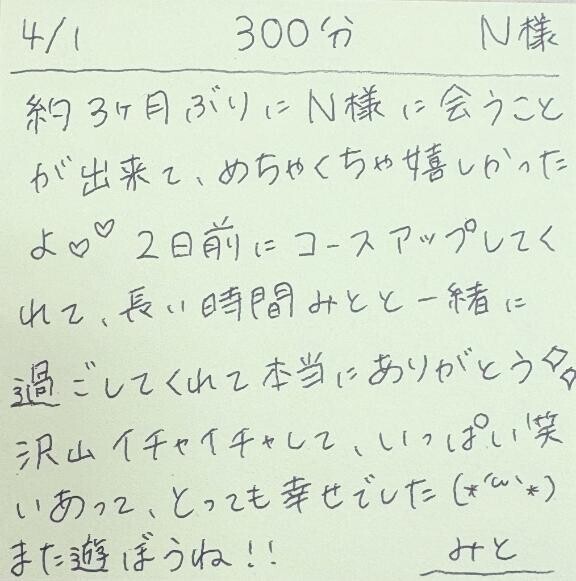 4/1 300分 N様
約3ヶ月ぶりにN様に会うこと
が出来て、めちゃくちゃ嬉しかった
よ♡♡ 2日前にコースアップしてく
れて、長い時間みとと一緒に
過ごしてくれて本当にありがとう✧✧
沢山イチャイチャして、いっぱい笑
いあって、とっても幸せでした(*´ω`*)
また遊ぼうね!! みと